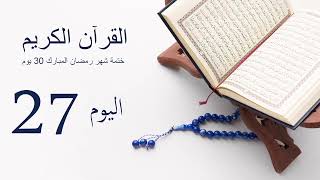 القرآن الكريم
ختمة شهر رمضان المبارك 30 يوم
اليوم 27